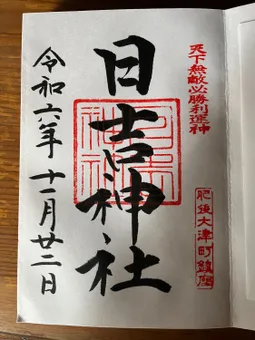 天下無敵必勝利運神
肥後大津町鎮座
日吉神社
令和六年十一月廿二日